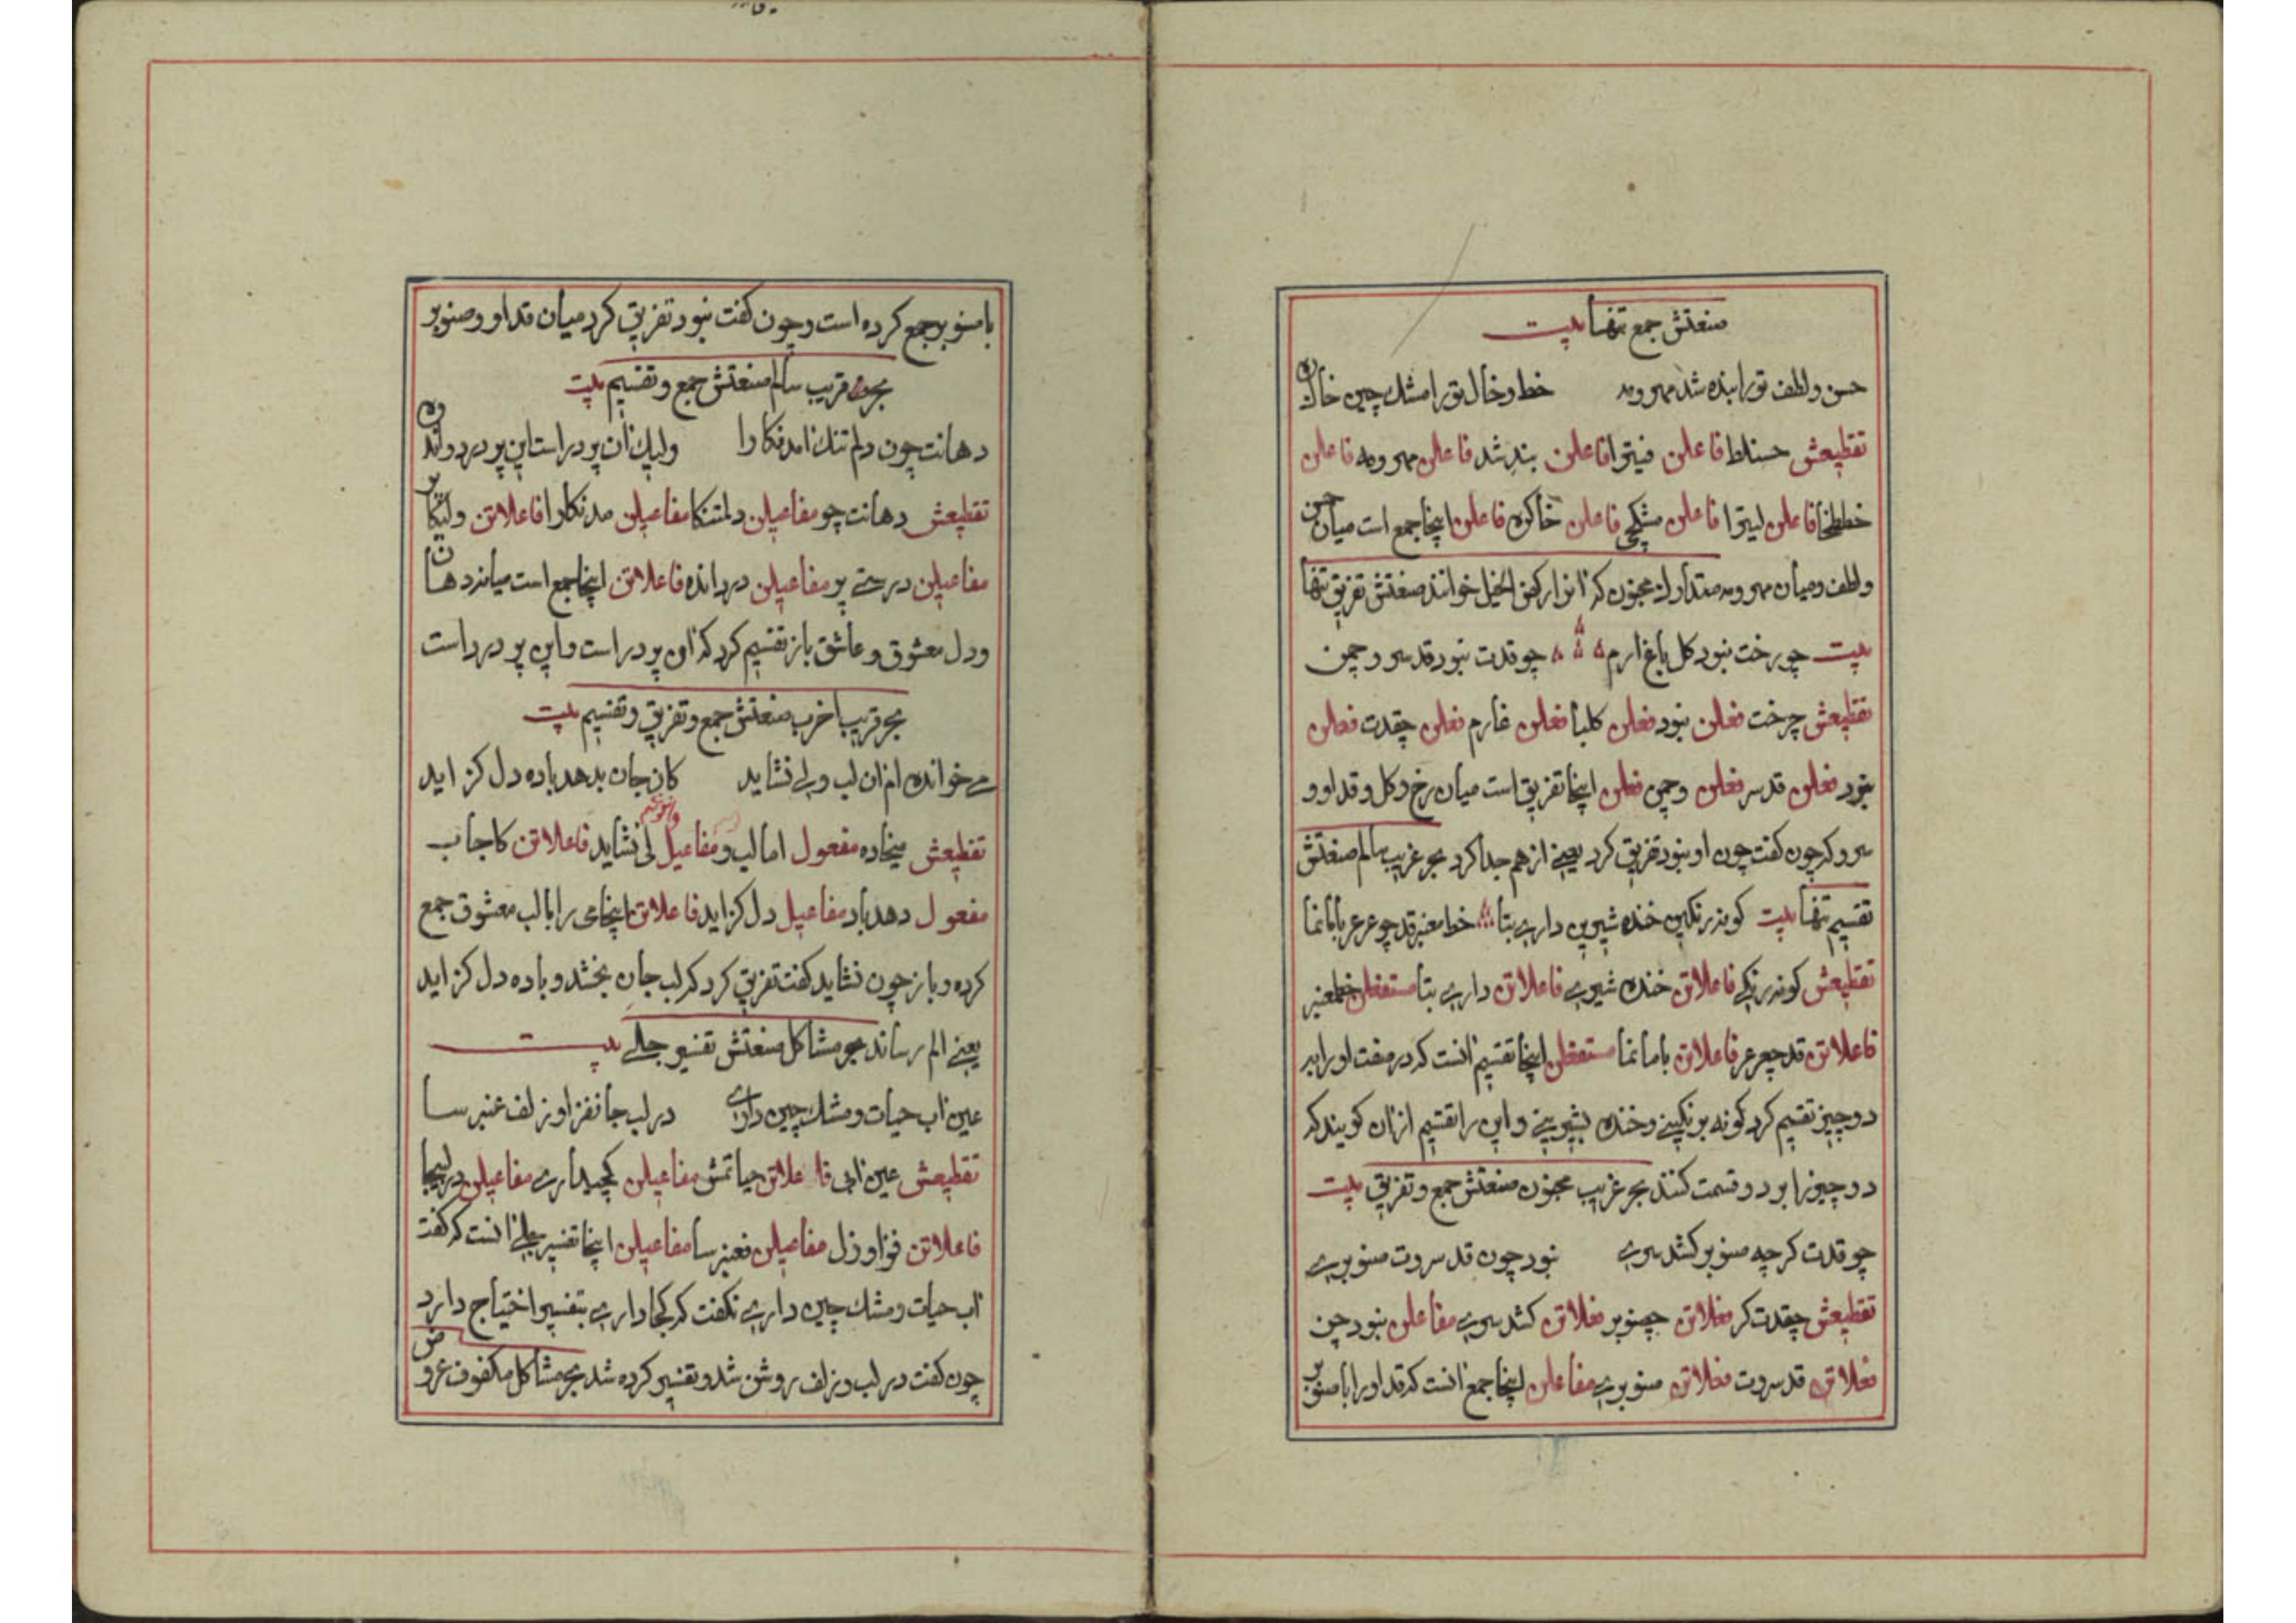 صنعتش جمع تنها بیت
حسن و لطف تو را بنده شد مهر و مه خط و خال تو را مشك چین خاك ره
تقطیعش حسنلط فاعلن فیترا فاعلن بندشد فاعلن مهر ومه فاعلن
خططخا فاعلن لیترا فاعلن مشکچی فاعلن خاکره فاعلن اینجا جمع است میان حسن
و لطف و میان مهر و مه متدارك مخبون كه انرا ركض الخیل خوانند صنعتش تفریق تنها
بیت چو رخت نبود كل باغ ارم چو قدت نبود قد سرو چمن
تقطیعش چرخت فعلن نبود فعلن كلبا فعلن غارم فعلن چقدت فعلن
نبود فعلن قد سر فعلن وچمن فعلن اینجا تفریق است میان رخ و كل و قد او و
سرو كه چون كفت چون او نبود تفریق كرد یعنی از هم جدا كرد بحر غریب سالم صنعتش
تقسیم تنها بیت كونه رنكین خنده شیرین داری بتا خط معنبر قد چو عرعر باما نما
تقطیعش كونه رنكی فاعلاتن خنده شیری فاعلاتن داری بتا مستفعلن خطمعنبر
فاعلاتن قد چعرعر فاعلاتن باما نما مستفعلن اینجا تقسیم انست كه در صفت او را بر
دو چیز تقسیم كرد كونه برنكینی و خنده بشیرینی و این را تقسیم از ان كویند كه
دو چیز را بر دو قسمت كنند بحر غریب مخبون صنعتش جمع و تفریق بیت
چو قدت كرچه صنوبر كشد سری نبود چون قد سروت صنوبری
تقطیعش چقدت كر فعلاتن چصنوبر فعلاتن كشد سری مفاعلن نبود چن
فعلاتن قد سروت فعلاتن صنوبری مفاعلن اینجا جمع انست كه قد او را با صنوبر
با صنوبر جمع كرده است و چون كفت نبود تفریق كرد میان قد او و صنوبر
بحر قریب سالم صنعتش جمع و تقسیم بیت
دهانت چون دلم تنك امد نكارا ولیك ان پر در است این پر درد و انده
تقطیعش دهانت چو مفاعیلن دلمتنكا مفاعیلن مدنكارا فاعلاتن ولیكا
مفاعیلن درستی پر مفاعیلن درد انده فاعلاتن اینجا جمع است میان دهان
و دل معشوق و عاشق باز تقسیم كرد كه ان پر در است و این پر درد است
بحر قریب اخرب صنعتش جمع و تفریق و تقسیم بیت
می خوانده ام ان لب ولی نشاید كان جان بدهد باده دل كزاید
تقطیعش میخاده مفعول امالب و مفاعیل لی نشاید فاعلاتن كاجا ب
مفعول دهد باد مفاعیل دل كزاید فاعلاتن اینجا می را با لب معشوق جمع
كرده و باز چون نشاید كفت تفریق كرد كه لب جان بخشد و باده دل كزاید
یعنی الم رساند بحر مشاكل صنعتش تفسیر جلی بیت
عین اب حیات و مشك چین داری در لب جانفزا و زلف عنبر سا
تقطیعش عین ابی فاعلاتن حیاتمش مفاعیلن كچیداری مفاعیلن در لبجا
فاعلاتن فزا و زل مفاعیلن فعنبر سا مفاعیلن اینجا تفسیر جلی انست كه كفت
اب حیات و مشك چین داری نكفت كه كجا داری بتفسیر احتیاج دارد
چون كفت در لب و زلف روشن شد و تفسیر كرده شد بحر مشاكل مكفوف عروض